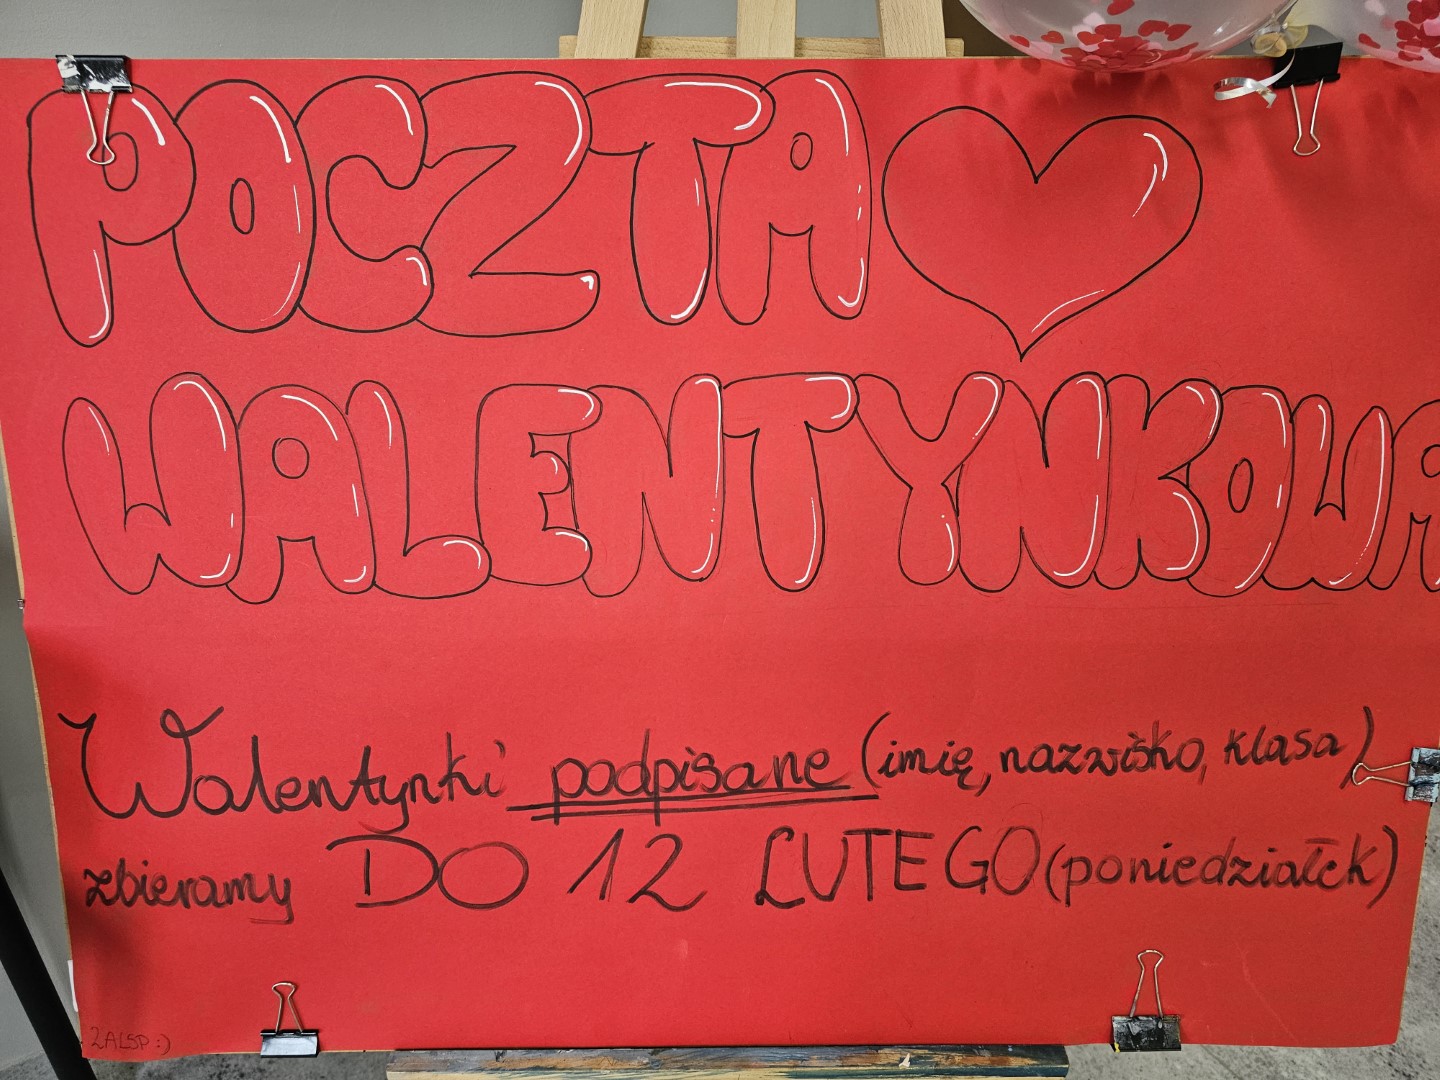 POCZTA
WALENTYNKOWA
Walentynki podpisane (imię, nazwisko, klasa)
zbieramy DO 12 LUTEGO (poniedziałek)
2ALSP :)